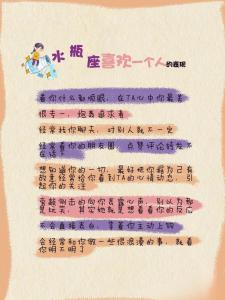 水瓶座喜欢一个人的表现
看你什么都顺眼，在TA心中你最美
很专一，拒绝追求者
经常找你聊天，对别人就不一定
经常看你的朋友圈 点赞评论转发不在话下
想知道你的一切，最好把你据为己有
故意经常给你看到TA的心情动态，引起你的关注
旁敲侧击的向你表露心声，别以为那是玩笑，其实她就是想看看你的反应
不会直接表白，等着你主动上钩
会经常和你做一些很浪漫的事，就看你明不明了